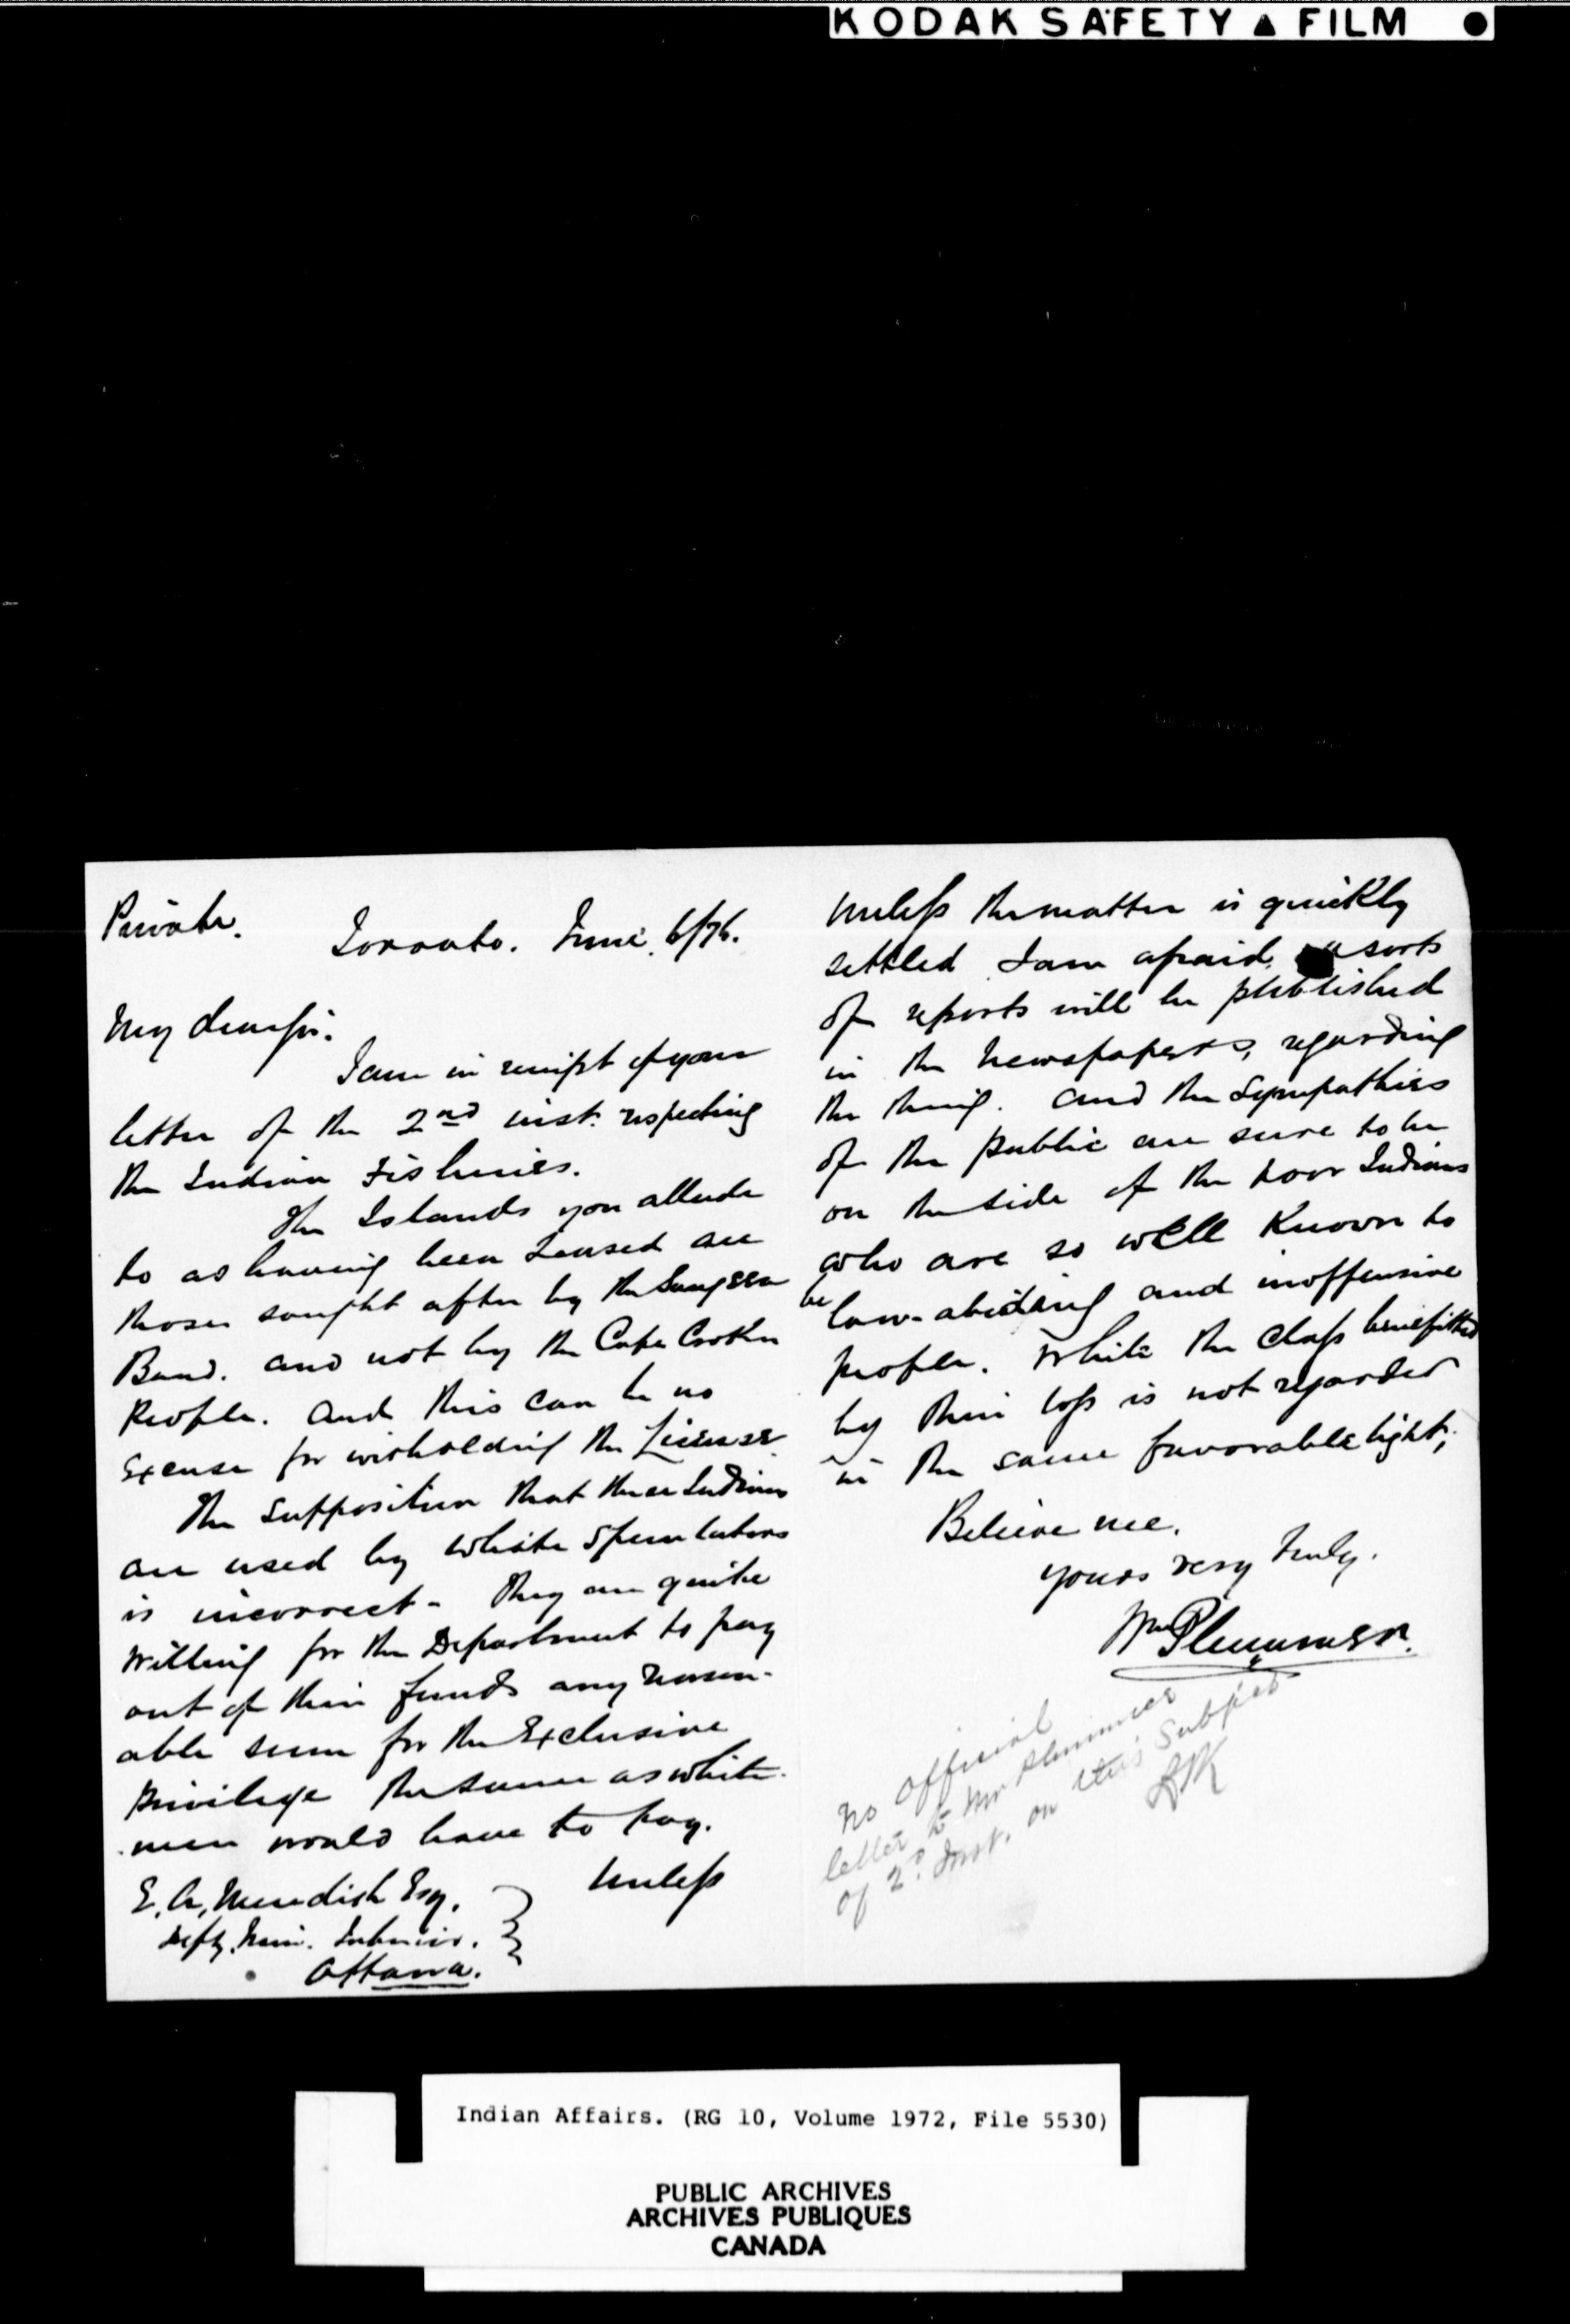 KODAK SAFETY ▲ FILM ●
Private.
Toronto. June. 6/76.
My dear Sir.
I am in receipt of your
letter of the 2nd inst. respecting
the Indian Fisheries.
The Islands you allude
to as having been Leased are
those sought after by the Saugeen
Band. and not by the Cape Croker
People. and this can be no
Excuse for witholding the License
The supposition that these Indians
are used by white Speculators
is incorrect - They are quite
willing for the Department to pay
out of their funds any reason-
able sum for the Exclusive
privilege the same as white-
men would have to pay.
Unless
E. A. Meredith Esq.
Depy. Min. Interior.
Ottawa.
Unless the matter is quickly
settled I am afraid, sorts
of reports will be published
in the Newspapers, regarding
the thing. and the Sympathies
of the public are sure to be
on the side of the poor Indians
who are so well Known to
be law-abiding and inoffensive
people. While the Class benefitted
by their loss is not regarded
in the same favorable light;
Believe me.
yours very truly.
Wm Plummer.
No official
letter to Mr Plummer
of 2d. Inst. on this Subject
Indian Affairs. (RG 10, Volume 1972, File 5530)
PUBLIC ARCHIVES
ARCHIVES PUBLIQUES
CANADA